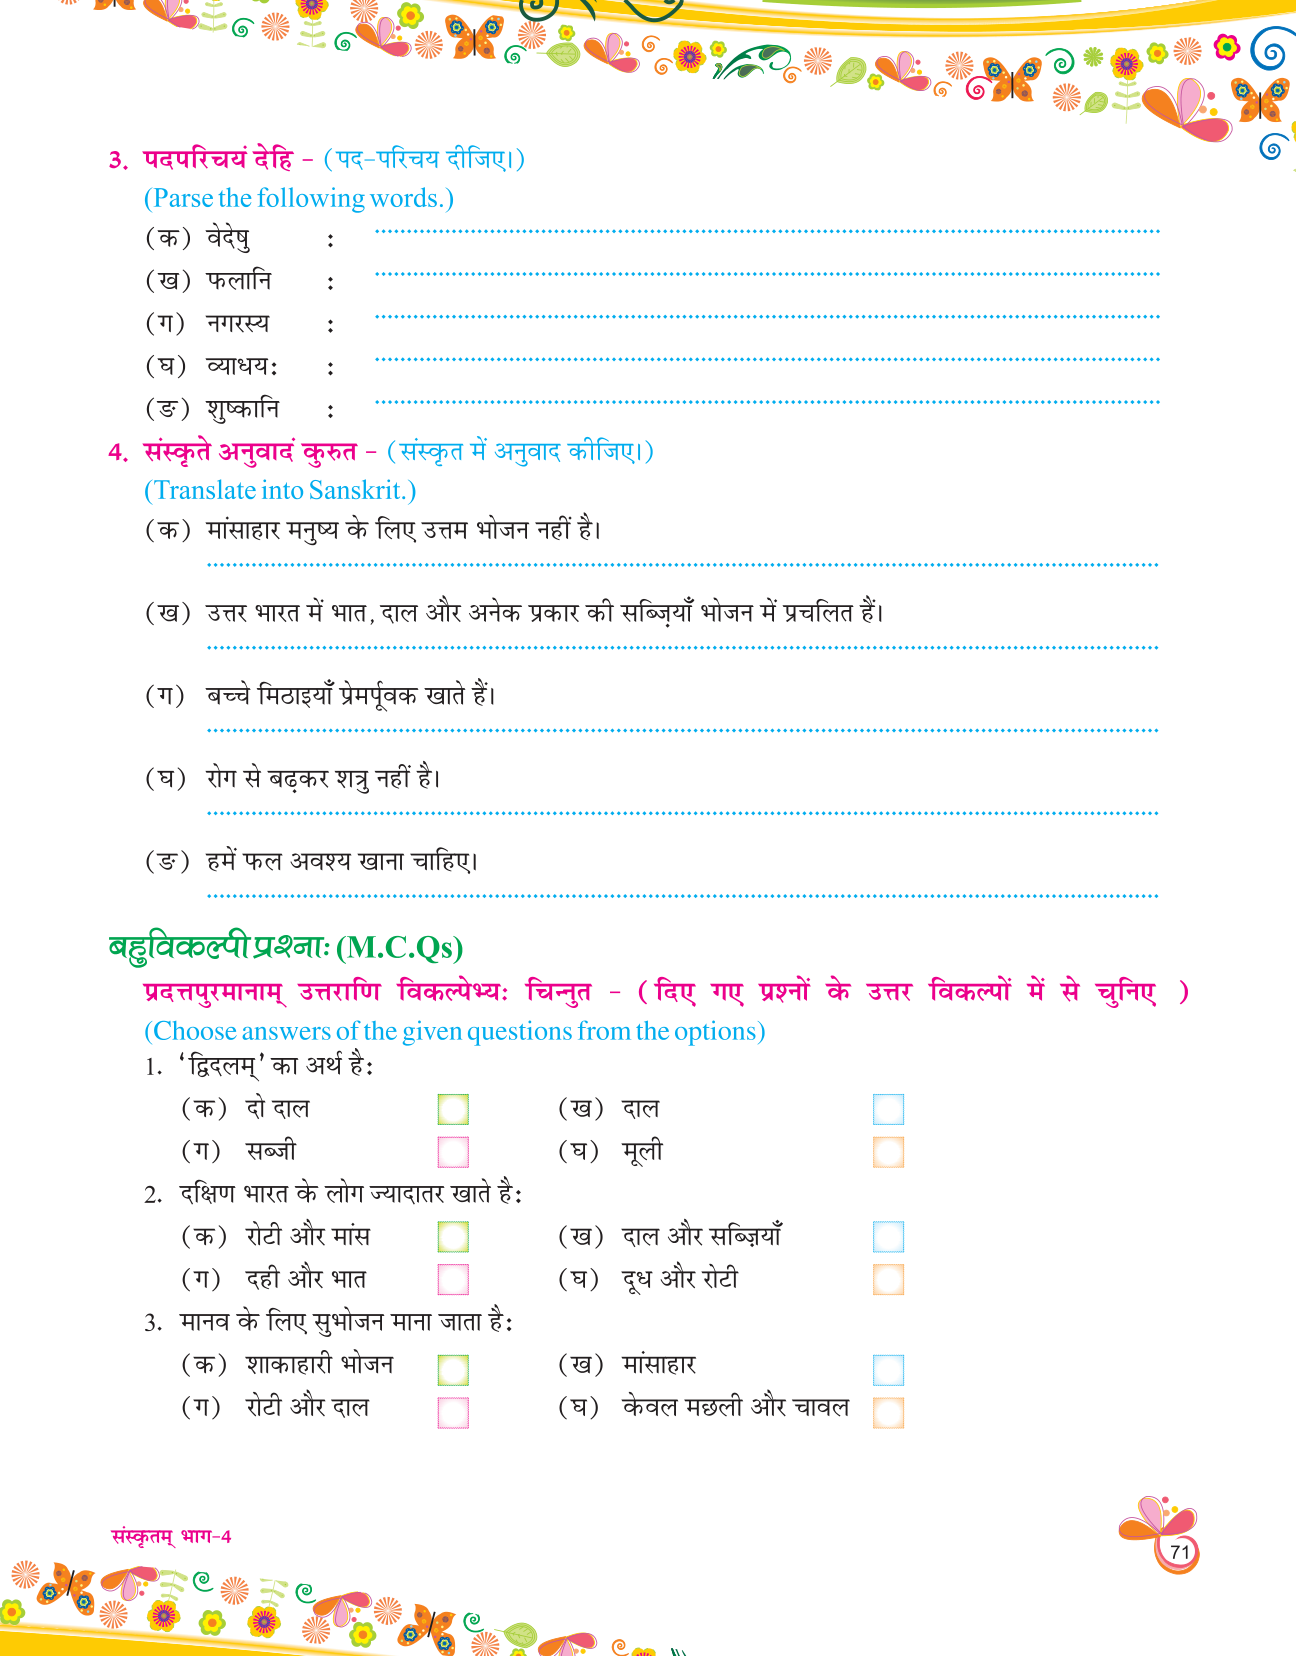 3. पदपरिचयं देहि – (पद-परिचय दीजिए।)
(Parse the following words.)
(क) वेदेषु :
(ख) फलानि :
(ग) नगरस्य :
(घ) व्याधयः :
(ङ) शुष्कानि :
4. संस्कृते अनुवादं कुरुत – (संस्कृत में अनुवाद कीजिए।)
(Translate into Sanskrit.)
(क) मांसाहार मनुष्य के लिए उत्तम भोजन नहीं है।
(ख) उत्तर भारत में भात, दाल और अनेक प्रकार की सब्ज़ियाँ भोजन में प्रचलित हैं।
(ग) बच्चे मिठाइयाँ प्रेमर्पूवक खाते हैं।
(घ) रोग से बढ़कर शत्रु नहीं है।
(ङ) हमें फल अवश्य खाना चाहिए।
बहुविकल्पी प्रश्नाः (M.C.Qs)
प्रदत्तपुरमानाम् उत्तराणि विकल्पेभ्यः चिन्नुत – (दिए गए प्रश्नों के उत्तर विकल्पों में से चुनिए )
(Choose answers of the given questions from the options)
1. 'द्विदलम्' का अर्थ है:
(क) दो दाल (ख) दाल
(ग) सब्जी (घ) मूली
2. दक्षिण भारत के लोग ज्यादातर खाते है:
(क) रोटी और मांस (ख) दाल और सब्ज़ियाँ
(ग) दही और भात (घ) दूध और रोटी
3. मानव के लिए सुभोजन माना जाता है:
(क) शाकाहारी भोजन (ख) मांसाहार
(ग) रोटी और दाल (घ) केवल मछली और चावल
संस्कृतम् भाग-4
71